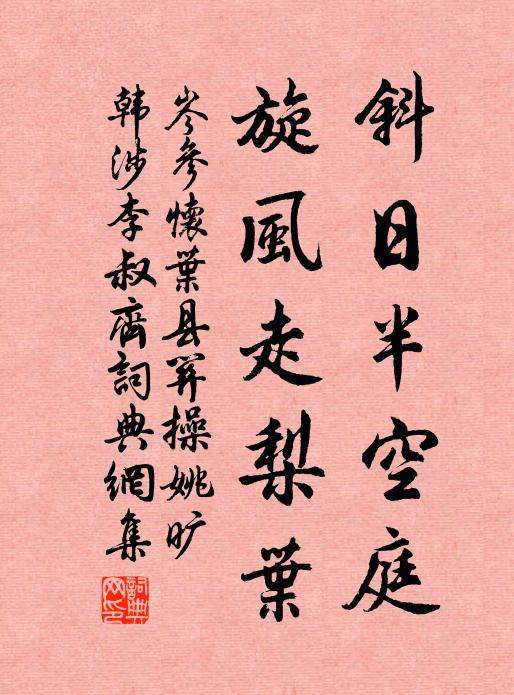 斜日半空庭
旋風走梨葉
岑參懷葉县関操姚旷
韩涉李叔齊詞典網集
詞典网印